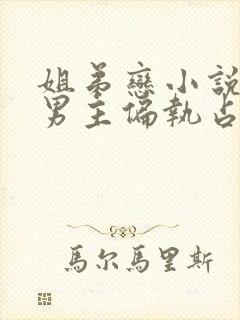 姐弟戀小說
男主偏執占
馬尔馬里斯